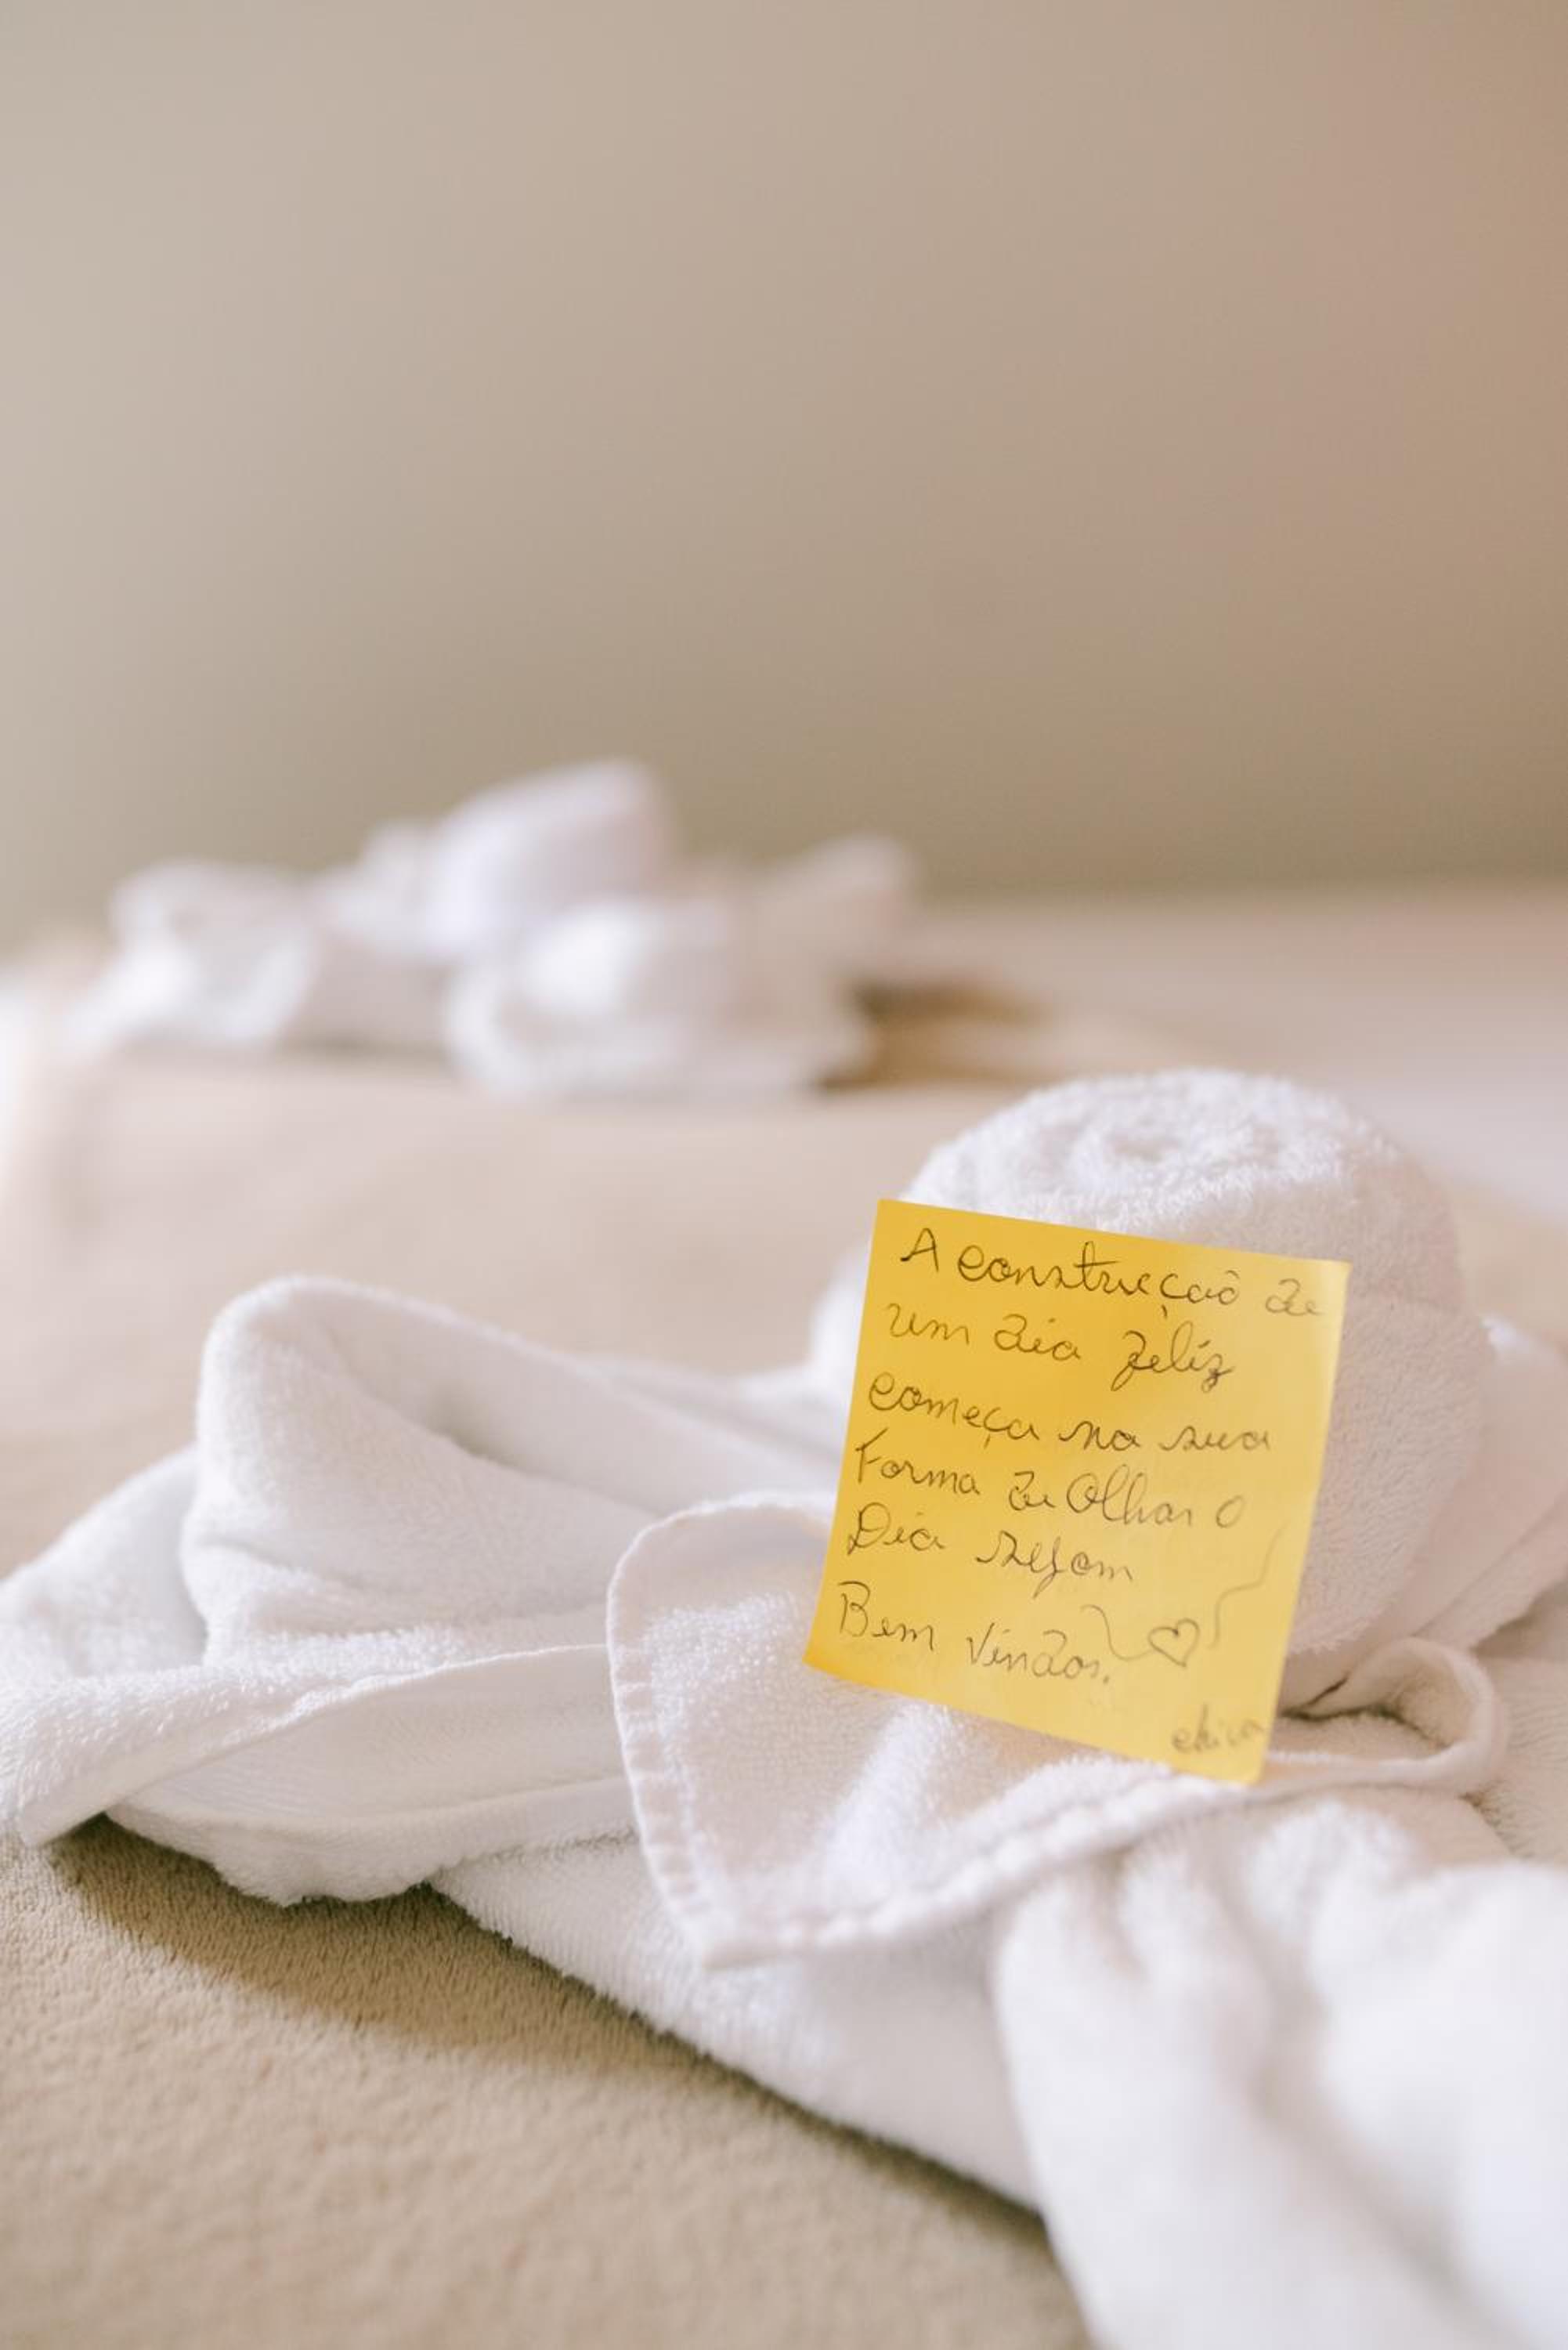 A construção de
um dia felíz
começa na sua
Forma de Olhar o
Dia sejam
Bem Vindos.